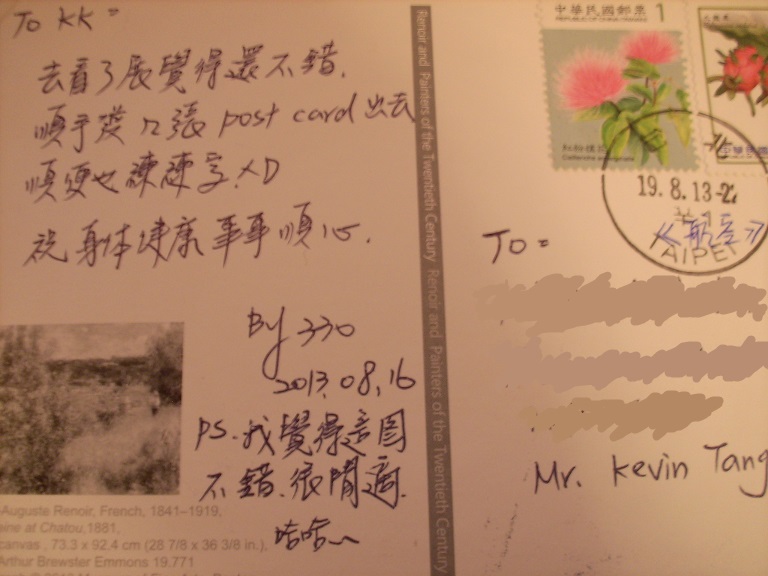 To KK =
去看了展覺得還不錯.
順手發ㄇ張 post card 出去
順便也練練字.XD
祝 身体健康 事事順心.
By 330
2013.08.16
PS.我覺得這圖
不錯.很閒適.
哈哈~
-Auguste Renoir, French, 1841–1919,
eine at Chatou,1881,
canvas , 73.3 x 92.4 cm (28 7/8 x 36 3/8 in.),
Arthur Brewster Emmons 19.771
Renoir and Painters of the Twentieth Century Renoir and Painters of the Twentieth Century
中華民國郵票 1
REPUBLIC OF CHINA
中華民國
19.8.13-2
TAIPEI
To =
Mr. Kevin Tang